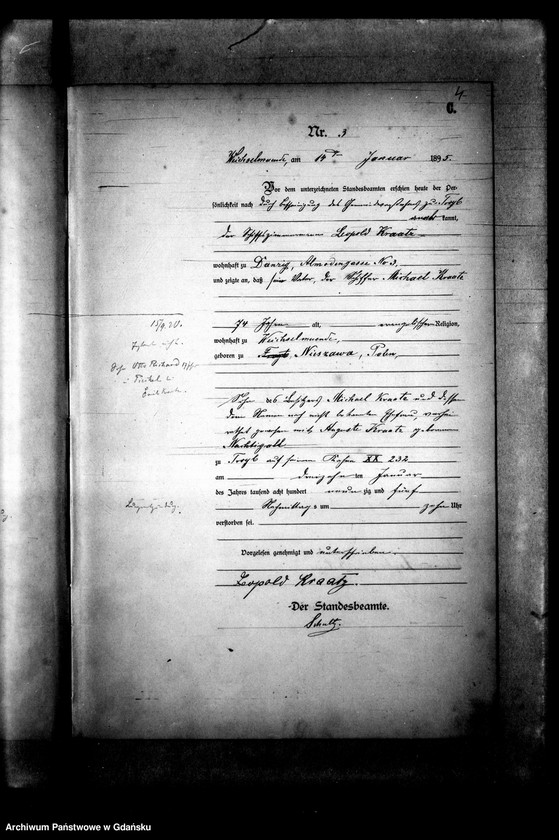 4
C.
Nr. 3
Weichselmünde, am 14ten Januar 1895.
Vor dem unterzeichneten Standesbeamten erschien heute der Per-
sönlichkeit nach durch Bescheinigung des Gemeindevorstehers zu Troyl
kannt,
der Schiffszimmermann Leopold Kraatz
wohnhaft zu Danzig, Almodengasse Nr. 3,
und zeigte an, daß sein Vater, der Schiffer Michael Kraatz
74 Jahre alt, evangelischer Religion,
wohnhaft zu Weichselmünde,
geboren zu Troyl, Nieszawa, Polen,
Sohn des Besitzers Michael Kraatz und dessen
dem Namen nach nicht bekannten Ehefrau, verhei-
rathet gewesen mit Auguste Kraatz geborenen
Nachtigall
zu Troyl auf seinem Kahn XX 232
am dreizehnten Januar
des Jahres tausend acht hundert neunzig und fünf
Nachmittags um zehn Uhr
verstorben sei.
Vorgelesen genehmigt und unterschrieben.
Leopold Kraatz.
Der Standesbeamte.
Schultz.
15/9.20.
Sohn Otto Richard
Archiwum Państwowe w Gdańsku